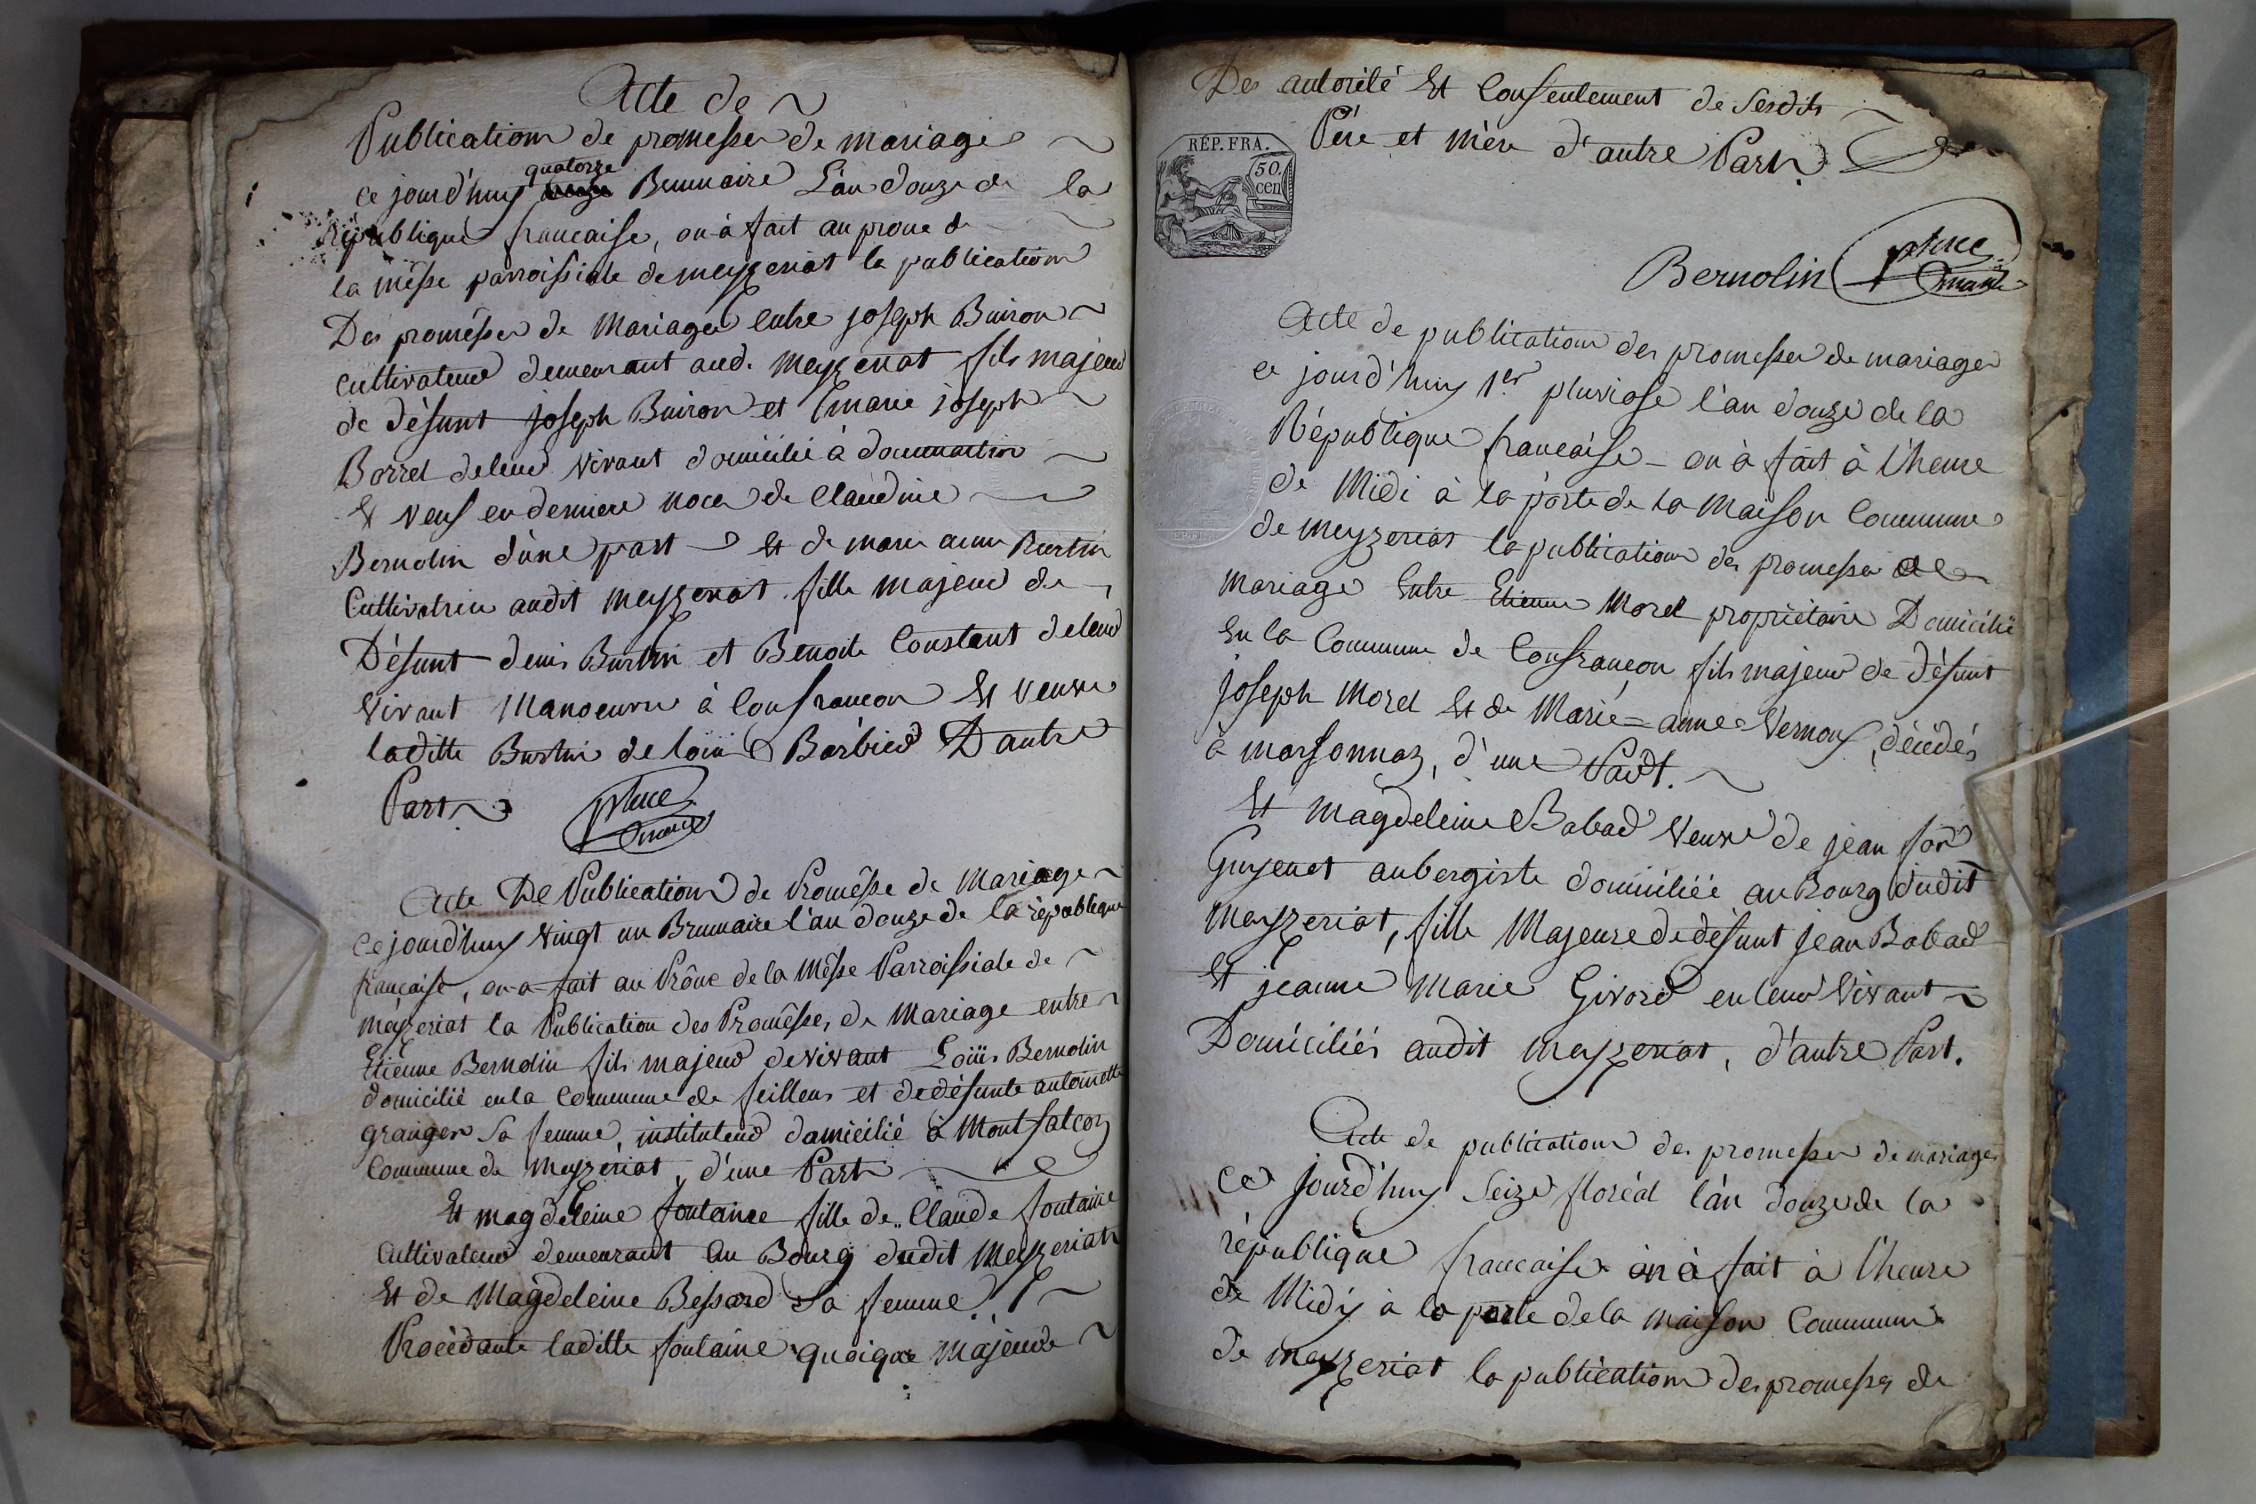 Acte de
Publication de promesse de mariage
quatorze
ce jourd'huy Brumaire L'an douze de la
République francaise, on à fait au prone de
la mèsse parroissiale de meyzeriat la publication
Des promèsses de Mariage entre joseph Buiron
cultivateur demeurant aud. meyzeriat fils majeur
de défunt joseph Buiron et marie joseph
Borrel deleur vivant domicilié à dommartin
Et veuf en derniere noce de Claudine
Bernolin d'une part Et de marie anne Burtin
Cultivatrice audit meyzeriat fille majeur de
Défunt denis Burtin et Benoite Constant deleur
vivant Manoeuvre à Confrancon Et veuve
laditte Burtin de loüis Barbier D'autre
Part
place
maire
Acte De Publication de Promèsse de Mariage
Ce jourd'huy vingt un Brumaire l'an douze de la république
francaise, on a fait au Prône de la Mèsse Parroissiale de
meyzeriat la Publication des Promèsses de Mariage entre
Etienne Bernolin fils majeur de vivant Loüis Bernolin
domicilié en la Commune de feillens et de défunte antoinette
granger Sa femme, instituteur domicilié à Montfalcon
Commune de Meyzériat, d'une Part
Et magdeleine fontaine fille de Claude fontaine
Cultivateur demeurant au Bourg dudit Meyzeriat
Et de Magdeleine Bessard Sa femme
Procèdante laditte fontaine quoique Majeure
Des autorité Et Consentement de Sesdits
Père et mère d'autre Part
RÉP. FRA.
50.
cen
Bernolin place
maire
Acte de publication des promesses de mariage
ce jourd'huy 1er pluviose l'an douze de la
République francaise on à fait à l'heure
de Midi à la porte de la Maison Commune
de meyzeriat la publication des promesses de
mariage Entre Etienne Morel propriétaire Domicilié
En la Commune de Confrancon fils majeur de défunt
joseph Morel Et de Marie=anne Vernoux, décédés
à marsonnaz, d'une Part.
Et magdeleine Babad Veuve de jean
Guyenet aubergiste domiciliée au Bourg dudit
Meyzeriat, fille Majeure de défunt jean Babad
Et jeanne Marie Givord en leur Vivant
Domiciliés audit Meyzeriat, d'autre Part.
Acte de publication des promesses de mariage
Ce jourd'huy Seize floréal l'an douze de la
république francaise on à fait à l'heure
de Midy à la porte de la maison Commune
de meyzeriat la publication des promesses de